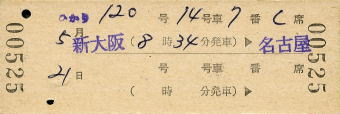 ひかり 120 号 14 号車 7 番 C 席
5 月 新大阪 (8 時 34 分発車) ▶ 名古屋
21 日 号 号車 番 席
( 時 分発車) ▶
00525
00525